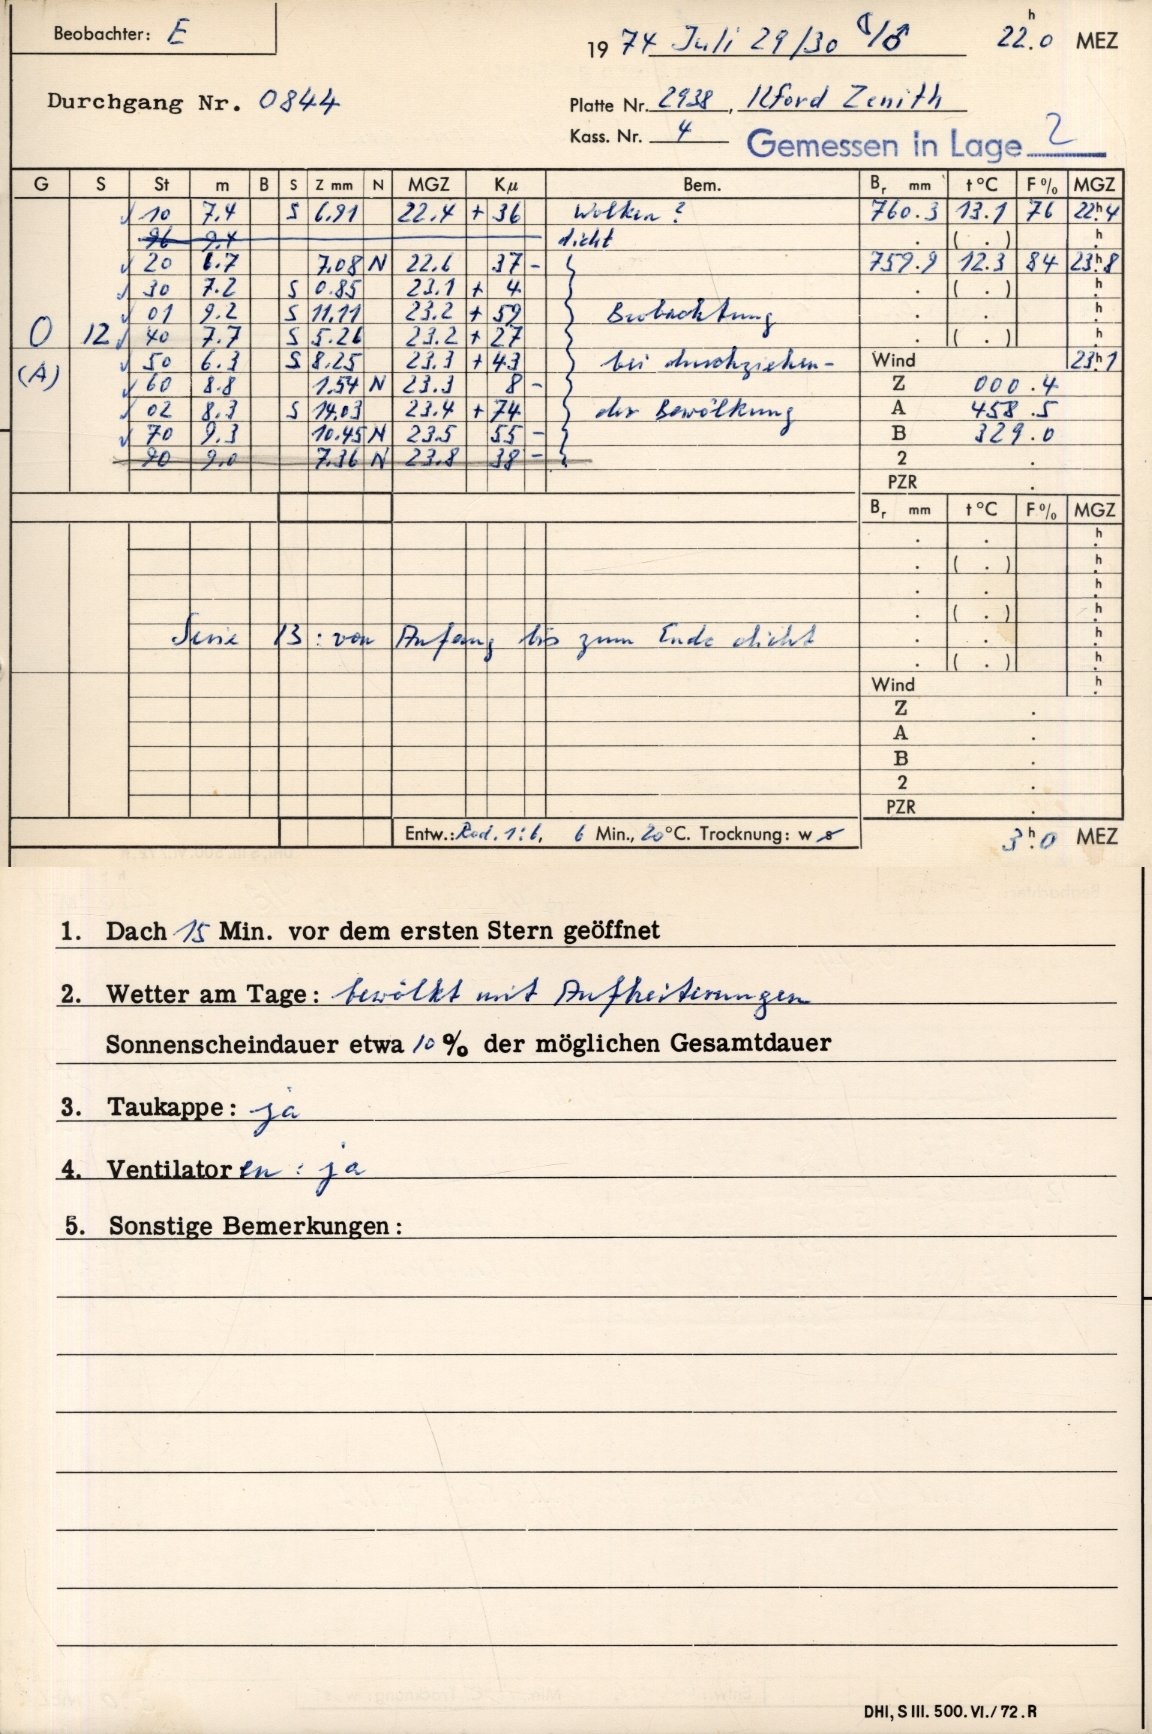 Beobachter: E
1974 Juli 29/30 ☾/♂ 22.ʰ0 MEZ
Durchgang Nr. 0844
Platte Nr. 2938, Ilford Zenith
Kass. Nr. 4 Gemessen in Lage 2
G S St m B S Z mm N MGZ Kμ Bem. Bᵣ mm t°C F% MGZ
√ 10 7.4 S 6.91 22.4 + 36 Wolken? 760.3 13.1 76 22ʰ.4
96 9.4 dicht . ( . ) ʰ.
√ 20 6.7 7.08 N 22.6 37 - 759.9 12.3 84 23ʰ.8
√ 30 7.2 S 0.85 23.1 + 4 . ( . ) ʰ.
√ 01 9.2 S 11.11 23.2 + 59 Beobachtung . . ʰ.
O 12 √ 40 7.7 S 5.26 23.2 + 27 . ( . ) ʰ.
(A) √ 50 6.3 S 8.25 23.3 + 43 bei durchziehen- Wind 23ʰ.1
√ 60 8.8 1.54 N 23.3 8 - Z 000.4
√ 02 8.3 S 14.03 23.4 + 74 der Bewölkung A 458.5
√ 70 9.3 10.45 N 23.5 55 - B 329.0
90 9.0 7.36 N 23.8 38 - 2 .
PZR .
Bᵣ mm t°C F% MGZ
. . ʰ.
. ( . ) ʰ.
. . ʰ.
. ( . ) ʰ.
Serie 13: von Anfang bis zum Ende dicht . . ʰ.
. ( . ) ʰ.
Wind ʰ.
Z .
A .
B .
2 .
PZR .
Entw.: Rod. 1:6, 6 Min., 20°C. Trocknung: w s 3.ʰ0 MEZ
1. Dach 15 Min. vor dem ersten Stern geöffnet
2. Wetter am Tage: bewölkt mit Aufheiterungen
Sonnenscheindauer etwa 10% der möglichen Gesamtdauer
3. Taukappe: ja
4. Ventilatoren: ja
5. Sonstige Bemerkungen:
DHI, S III. 500. VI./72. R